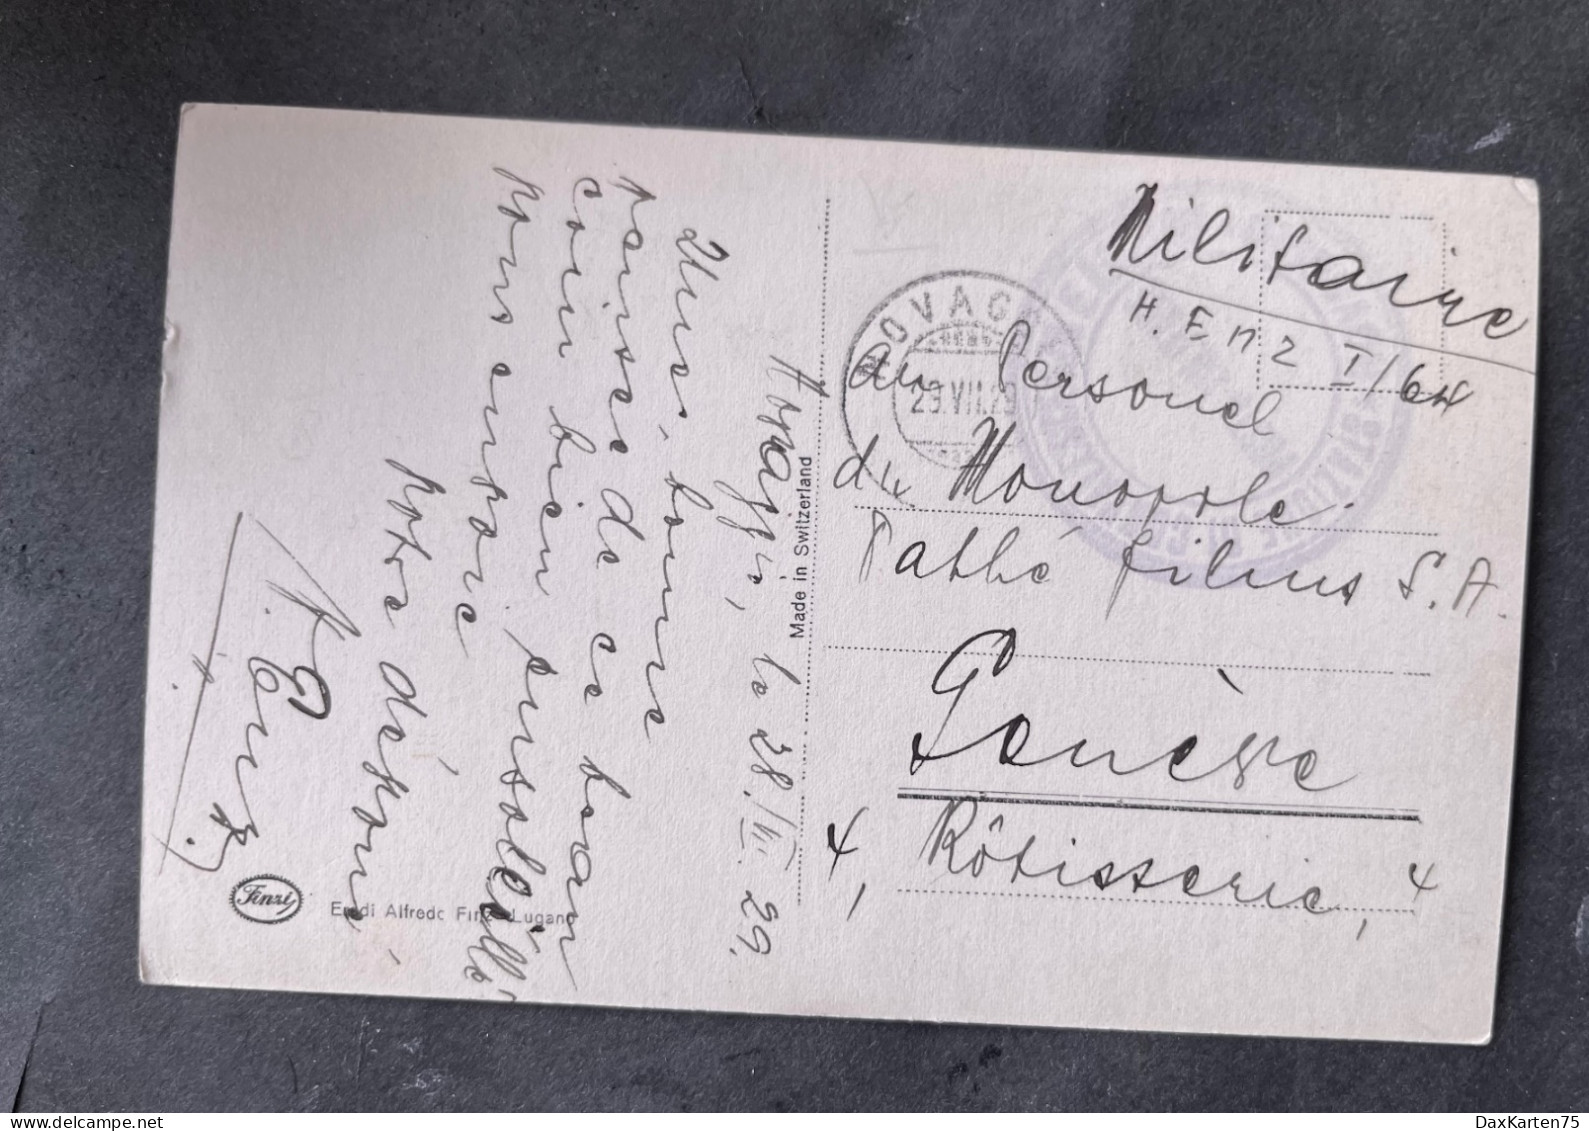 Novaggio, le 28./VII. 29.
Une bonne
pensée de ce beau
coin bien ensoleillé
vous envoie
votre dévoué
H. Enz
Made in Switzerland
Finzi
Ediz. Alfredo Finzi Lugano
Militaire
H. Enz I/64
NOVAGGIO
29.VII.29
au Personel
du Monopole
Pathé Films S.A.
Genève
4, Rôtisserie, 4
DaxKarten75